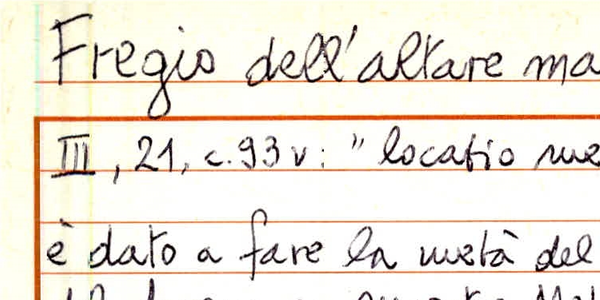 Fregio dell'altare ma
III, 21, c. 93 v: "locatio me
è dato a fare la metà del